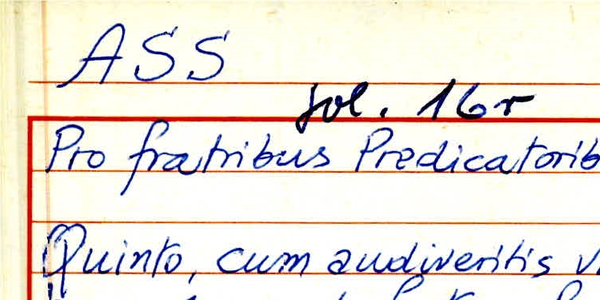 ASS
fol. 16r
Pro fratribus Predicatorib
Quinto, cum audiveritis